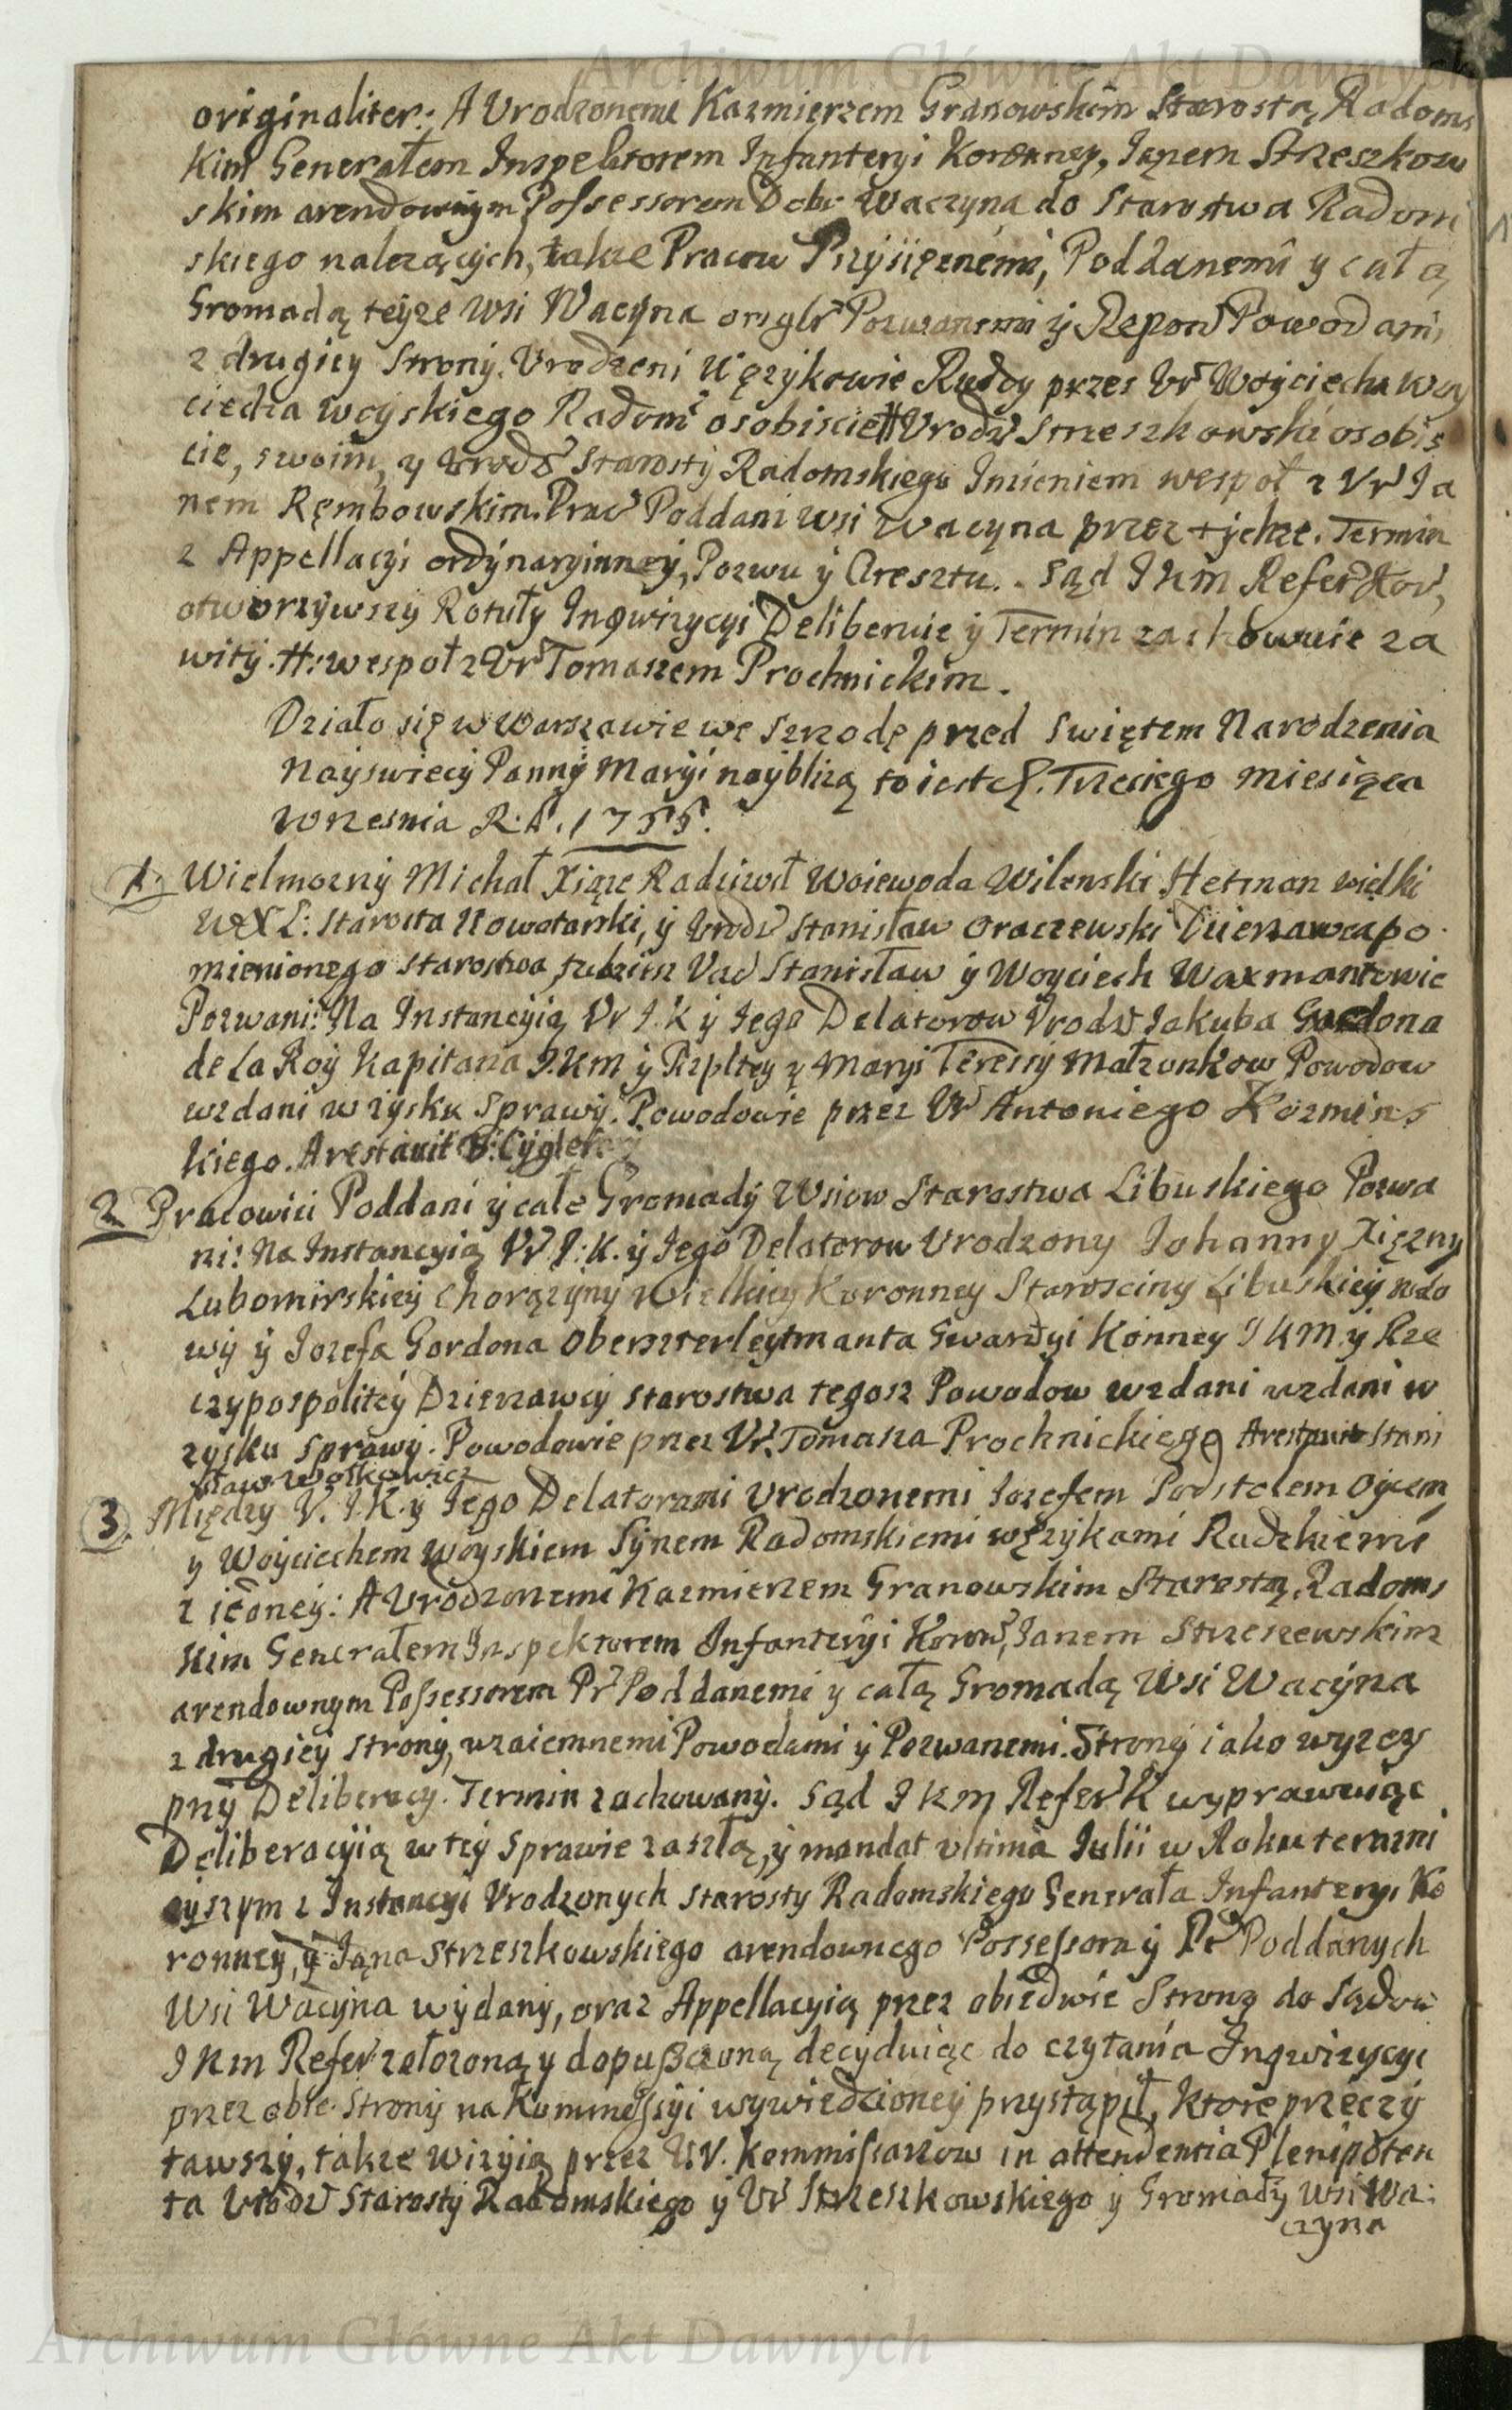 Archiwum Główne Akt Dawnych
originaliter: A Urodzonemi Kazmierzem Granowskim Starostą Radoms
kim Generałem Inspektorem Infanteryi Koronney, Janem Strzeszkow
skim arendownym Possessorem Dobr Waczyna do Starostwa Radom
skiego nalezących, takze Pracow Przysięznemi, Poddanemi y całą
Gromadą teyze Wsi Wacyna origlr Pozwanemi ÿ Repow Powodami
z drugiey Strony. Urodzeni Węzykowie Rudzy przez Ur Woyciecha Woy
ciecha Woyskiego Radom osobiscie # Urodz Strzeszkowski osobis
cie, swoim, y Urodz Starosty Radomskiego Imieniem wespoł z Ur Ja
nem Ręmbowskim. Prac Poddani wsi Wacyna przez tychze. Termin
z Appellacyi ordynaryinney, Pozwu ÿ Aresztu. Sąd J K M Refer Kor,
otworzywszy Rotuły Inqwizycyi Deliberuie ÿ Termin zachowuie za
wity. #: wespoł z Ur Tomaszem Prochnickim.
Działo się w Warszawie we Szrodę przed Swiętem Narodzenia
Nayswięcy Panny Maryi nayblizą to iest d. Trzeciego Miesiąca
Wrzesnia R. P. 1755.
1. Wielmozny Michał Xiąze Radziwił Woiewoda Wilenski Hetman wielki
W X L: Starosta Nowotarski, ÿ Urodz Stanisław Oraczewski Dzierzawca po
mienionego Starostwa, tudziesz Stanisław ÿ Woyciech Waxmantowic
Pozwani: Na Instancyią Ur J. K ÿ Jego Delatorow Urodz Jakuba Gordona
de La Roÿ Kapitana J. K M ÿ Rzpltey y Maryi Teressy Małzonkow Powodow
wzdani w zysku Sprawy. Powodowie przez Ur Antoniego Kozmins
kiego. Arestavit
2 Pracowici Poddani ÿ całe Gromady Wsiow Starostwa Libuskiego Pozwa
ni: Na Instancyią Ur J: K. ÿ Jego Delatorow Urodzony Johanny Xięzny
Lubomirskiey Chorązyny Wielkiey Koronney Starosciny Libuskiey wdo
wy ÿ Jozefa Gordona Oberszterleytmanta Gwardyi Konney J K M ÿ Rze
czypospolitey Dzierzawcy Starostwa tegosz Powodow wzdani wzdani w
zysku Sprawy. Powodowie przez Ur. Tomasza Prochnickiego Arestavit Stani
sław Wołkowicz
3. Między U. J. K. ÿ Jego Delatorami Urodzonemi Jozefem Podstolem Oycem
y Woyciechem Woyskiem Synem Radomskiemi Węzykami Rudzkiemi
z iedney: A Urodzonemi Kazmierzem Granowskim Starostą Radoms
kim Generałem Inspektorem Infanteryi Koron, Janem Strzeszewskim
arendownym Possessorem Pr Poddanemi y całą Gromadą Wsi Wacyna
z drugiey strony, wzaiemnemi Powodami ÿ Pozwanemi. Strony iako wyzey
przy Deliberacy. Termin zachowany. Sąd J K M Refer K wyprawuiąc
Deliberacyią w tey Sprawie zaszłą, ÿ mandat ultima Julii w Roku terazni
eyszym z Instancyi Urodzonych Starosty Radomskiego Generała Infanteryi Ko
ronney, ÿ Jana Strzeszkowskiego arendownego Possessora ÿ Pr Poddanych
Wsi Wacyna wydany, oraz Appellacyią przez obiedwie Strony do Sądow
J K M Refer załozoną y dopuszczoną decyduiąc do czytania Inqwizycyi
przez obie Strony na Kommissyi wywiedzioney przystąpił, ktore przeczy
tawszy, takze wizyią przez U.V. Kommissarzow in attendentia Plenipoten
ta Urodz Starosty Radomskiego ÿ Ur Strzeszkowskiego ÿ Gromady Wsi Wa:
czyna
Archiwum Główne Akt Dawnych